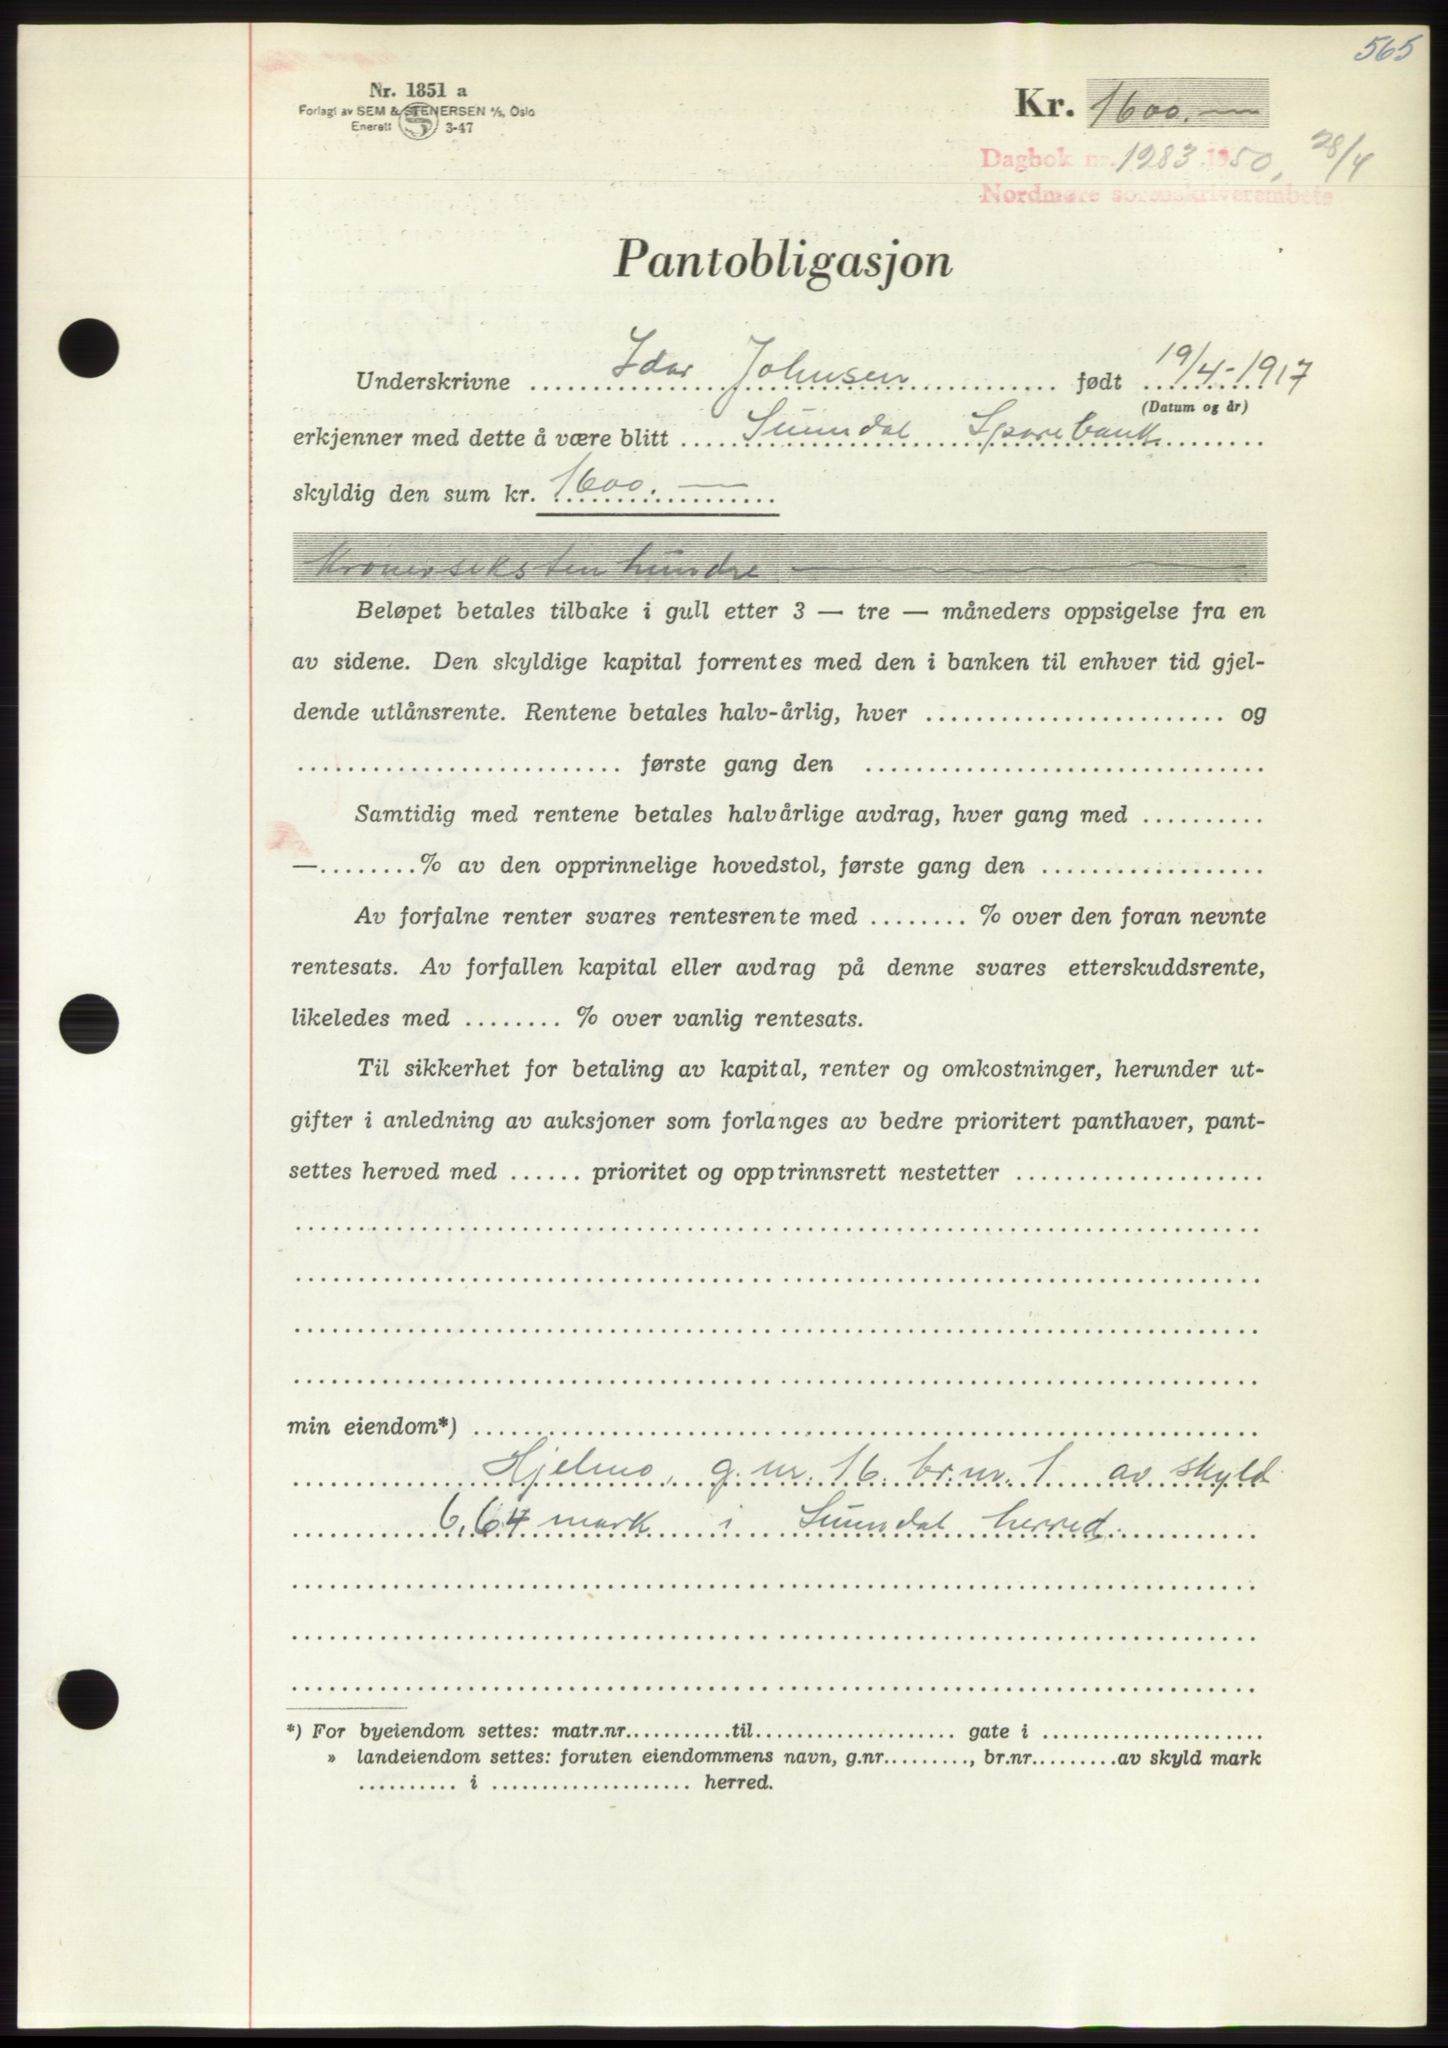 565
Nr. 1851 a
Forlagt av SEM & STENERSEN A/S, Oslo
Enerett 3-47
Kr. 1600.—
Dagbok nr. 1983 1950, 28/4
Nordmøre sorenskriverembete
Pantobligasjon
Underskrivne Idar Johnsen født 19/4-1917
(Datum og år)
erkjenner med dette å være blitt Sunndal Sparebank
skyldig den sum kr. 1600.—
Kroner seksten hundre —
Beløpet betales tilbake i gull etter 3 — tre — måneders oppsigelse fra en
av sidene. Den skyldige kapital forrentes med den i banken til enhver tid gjel-
dende utlånsrente. Rentene betales halv-årlig, hver ........................ og
.......................... første gang den ................................
Samtidig med rentene betales halvårlige avdrag, hver gang med ..........
—........% av den opprinnelige hovedstol, første gang den ..................
Av forfalne renter svares rentesrente med ........ % over den foran nevnte
rentesats. Av forfallen kapital eller avdrag på denne svares etterskuddsrente,
likeledes med ........ % over vanlig rentesats.
Til sikkerhet for betaling av kapital, renter og omkostninger, herunder ut-
gifter i anledning av auksjoner som forlanges av bedre prioritert panthaver, pant-
settes herved med ...... prioritet og opptrinnsrett nestetter ....................
min eiendom*) ..............................................................
Hjelmo, g.nr. 16 br.nr. 1 av skyld
6,64 mark i Sunndal herred.
*) For byeiendom settes: matr.nr...........til.................... gate i ......................
» landeiendom settes: foruten eiendommens navn, g.nr........., br.nr.........av skyld mark
.......... i .................... herred.